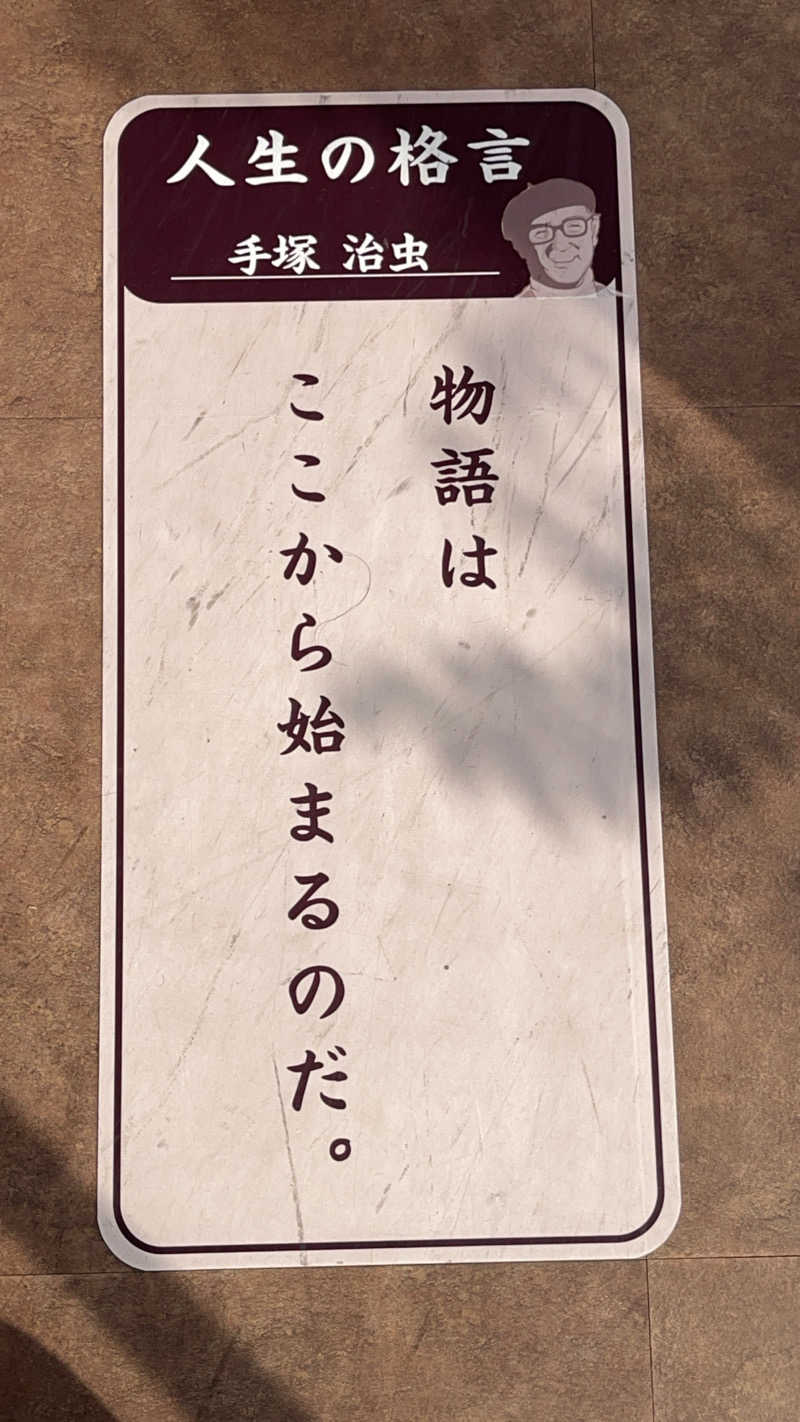 人生の格言
手塚 治虫
物語は
ここから始まるのだ。